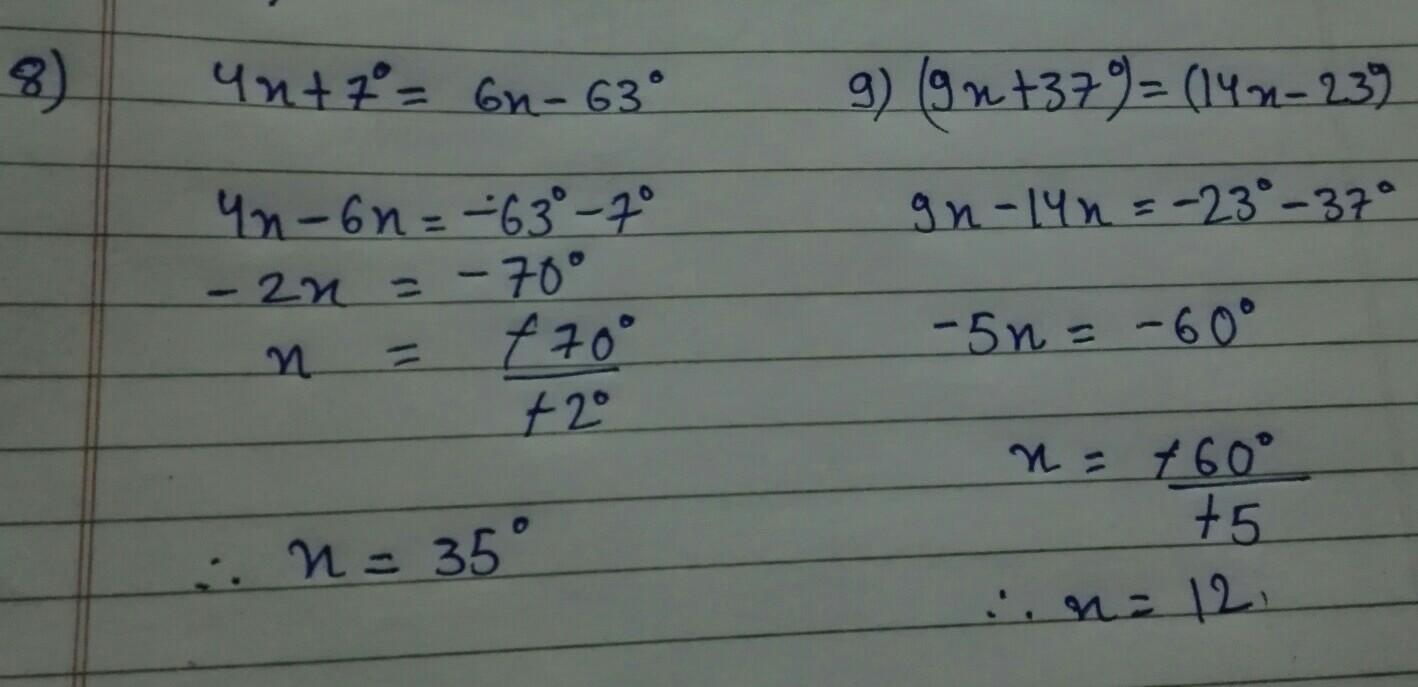 8) 4x + 7° = 6x - 63°
4x - 6x = -63° - 7°
-2x = -70°
x = +70°
+2°
∴ x = 35°
9) (9x + 37°) = (14x - 23°)
9x - 14x = -23° - 37°
-5x = -60°
x = +60°
+5
∴ x = 12.